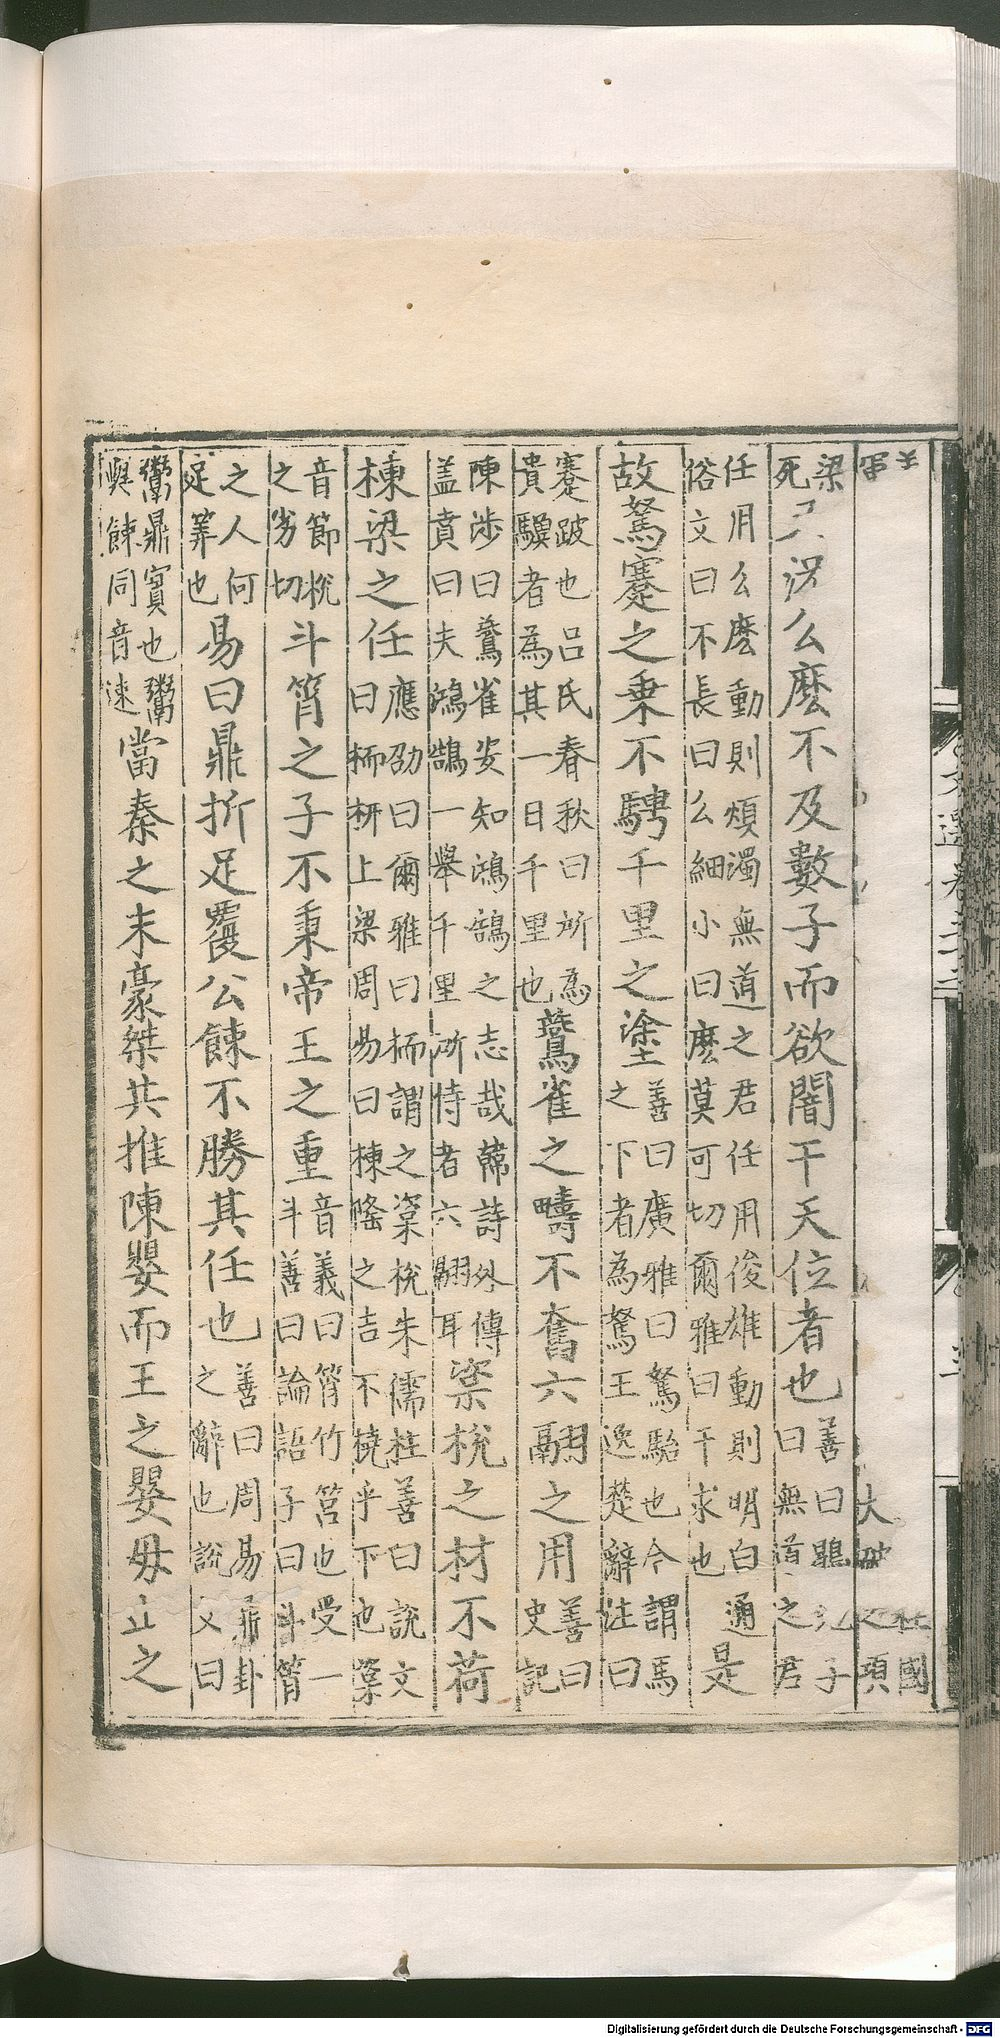 大破 之項
杜國
梁
死 又況么麽不及數子而欲闇干天位者也 善曰鶡冠子
曰無道之君
任用么麽動則煩濁無道之君任用俊雄動則明白通
俗文曰不長曰么細小曰麽莫可切爾雅曰干求也 是
故駑蹇之乗不騁千里之塗 善曰廣雅曰駑駘也今謂馬
之下者為駑王逸楚辭注曰
蹇跛也呂氏春秋曰所為
貴驥者為其一日千里也 鷰雀之疇不奮六翮之用 善曰
史記
陳涉曰鷰雀安知鴻鵠之志哉韓詩外傳
盖賁曰夫鴻鵠一舉千里所恃者六翮耳 楶梲之材不荷
棟梁之任 應劭曰爾雅曰栭謂之楶梲朱儒柱善曰說文
曰栭枅上梁周易曰棟隆之吉不橈乎下也楶
音節梲
之劣切 斗筲之子不秉帝王之重 音義曰筲竹筥也受一
斗善曰論語子曰斗筲
之人何
足筭也 易曰鼎折足覆公餗不勝其任也 善曰周易鼎卦
之辭也說文曰
鬻鼎實也鬻
與餗同音速 當秦之末豪桀共推陳嬰而王之嬰母止之
文選卷
Digitalisierung gefördert durch die Deutsche Forschungsgemeinschaft - DFG